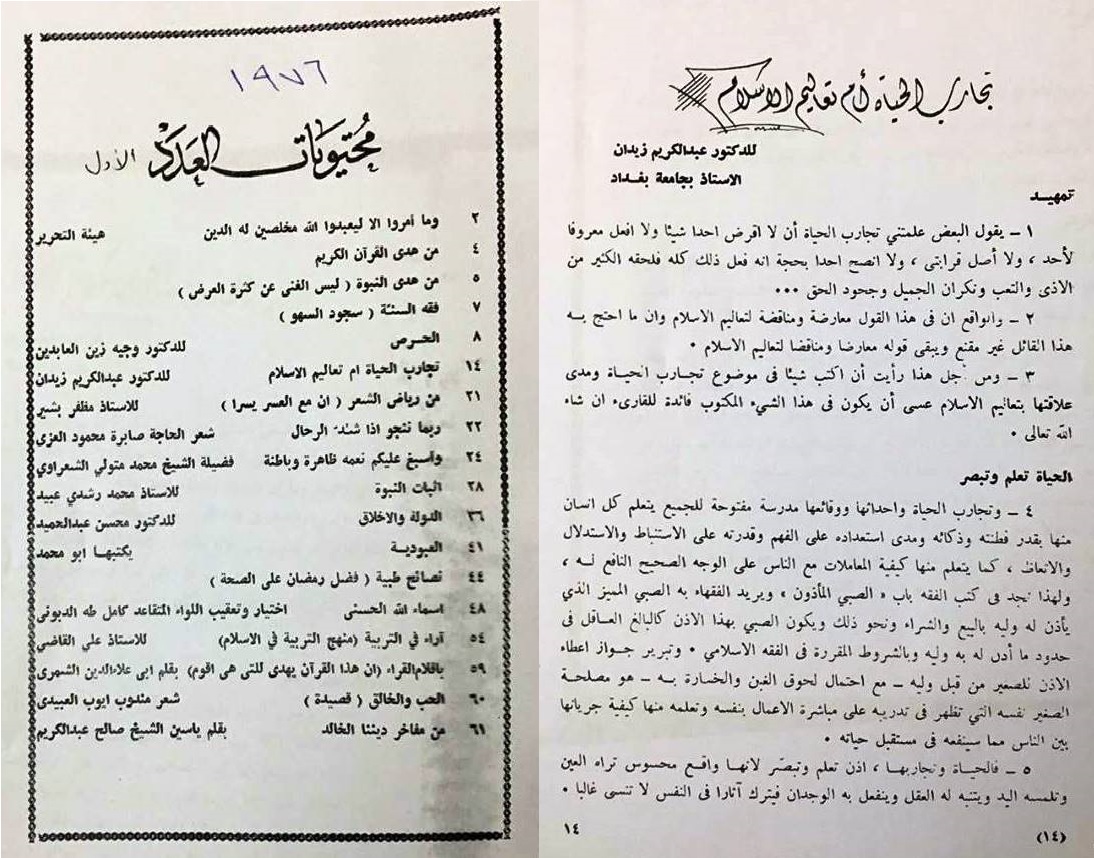 ١٩٧٦
محتويات العدد الأول
٢ وما أمروا الا ليعبدوا الله مخلصين له الدين هيئة التحرير
٤ من هدى القرآن الكريم
٥ من هدى النبوة ( ليس الغنى عن كثرة العرض )
٧ فقه السنة ( سجود السهو )
٨ الحرص للدكتور وجيه زين العابدين
١٤ تجارب الحياة ام تعاليم الاسلام للدكتور عبدالكريم زيدان
٢١ من رياض الشعر ( ان مع العسر يسرا ) للاستاذ مظفر بشير
٢٢ ربما ننجو اذا شد الرحال شعر الحاجة صابرة محمود العزي
٢٤ وأسبغ عليكم نعمه ظاهرة وباطنة فضيلة الشيخ محمد متولي الشعراوي
٢٨ اثبات النبوة للاستاذ محمد رشدي عبيد
٣٦ الدولة والاخلاق للدكتور محسن عبدالحميد
٤١ العبودية يكتبها ابو محمد
٤٤ نصائح طبية ( فضل رمضان على الصحة )
٤٨ اسماء الله الحسنى اختيار وتعقيب اللواء المتقاعد كامل طه الدبونى
٥٤ آراء في التربية (منهج التربية في الاسلام) للاستاذ علي القاضي
٥٩ باقلام القراء (ان هذا القرآن يهدى للتى هى اقوم) بقلم ابى علاءالدين الشمرى
٦٠ الحب والخالق ( قصيدة ) شعر مندوب ايوب العبيدى
٦١ من مفاخر ديننا الخالد بقلم ياسين الشيخ صالح عبدالكريم
تجارب الحياة أم تعاليم الاسلام
للدكتور عبدالكريم زيدان
الاستاذ بجامعة بغداد
تمهيد
١ – يقول البعض علمتني تجارب الحياة أن لا اقرض احدا شيئا ولا افعل معروفا
لأحد ، ولا أصل قرابتى ، ولا انصح احدا بحجة انه فعل ذلك كله فلحقه الكثير من
الاذى والتعب ونكران الجميل وجحود الحق ٠٠٠
٢ – والواقع ان فى هذا القول معارضة ومناقضة لتعاليم الاسلام وان ما احتج به
هذا القائل غير مقنع ويبقى قوله معارضا ومناقضا لتعاليم الاسلام ٠
٣ – ومن جل هذا رأيت أن اكتب شيئا فى موضوع تجارب الحياة ومدى
علاقتها بتعاليم الاسلام عسى أن يكون فى هذا الشيء المكتوب فائدة للقارىء ان شاء
الله تعالى ٠
الحياة تعلم وتبصر
٤ – وتجارب الحياة واحداثها ووقائعها مدرسة مفتوحة للجميع يتعلم كل انسان
منها بقدر فطنته وذكائه ومدى استعداده على الفهم وقدرته على الاستنباط والاستدلال
والاتعاظ ، كما يتعلم منها كيفية المعاملات مع الناس على الوجه الصحيح النافع له ،
ولهذا نجد فى كتب الفقه باب « الصبي المأذون » ويريد الفقهاء به الصبي المميز الذي
يأذن له وليه بالبيع والشراء ونحو ذلك ويكون الصبي بهذا الاذن كالبالغ العاقل فى
حدود ما أذن له به وليه وبالشروط المقررة فى الفقه الاسلامي ٠ وتبرير جواز اعطاء
الاذن للصغير من قبل وليه – مع احتمال لحوق الغبن والخسارة به – هو مصلحة
الصغير نفسه التي تظهر فى تدريبه على مباشرة الاعمال بنفسه وتعلمه منها كيفية جريانها
بين الناس مما سينفعه فى مستقبل حياته ٠
٥ – فالحياة وتجاربها ، اذن تعلم وتبصّر لانها واقع محسوس تراه العين
وتلمسه اليد ويتنبه له العقل وينفعل به الوجدان فيترك آثارا فى النفس لا تنسى غالبا ٠
١٤
(١٤)